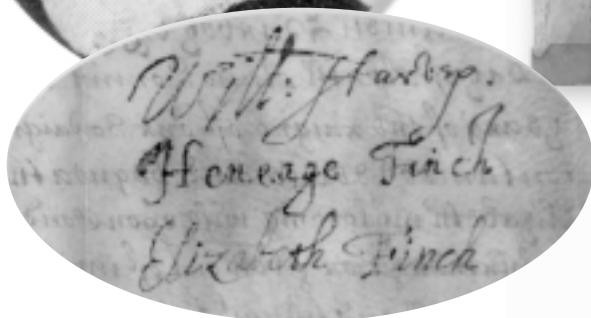 Will: Harvey.
Heneage Finch
Elizabeth Finch